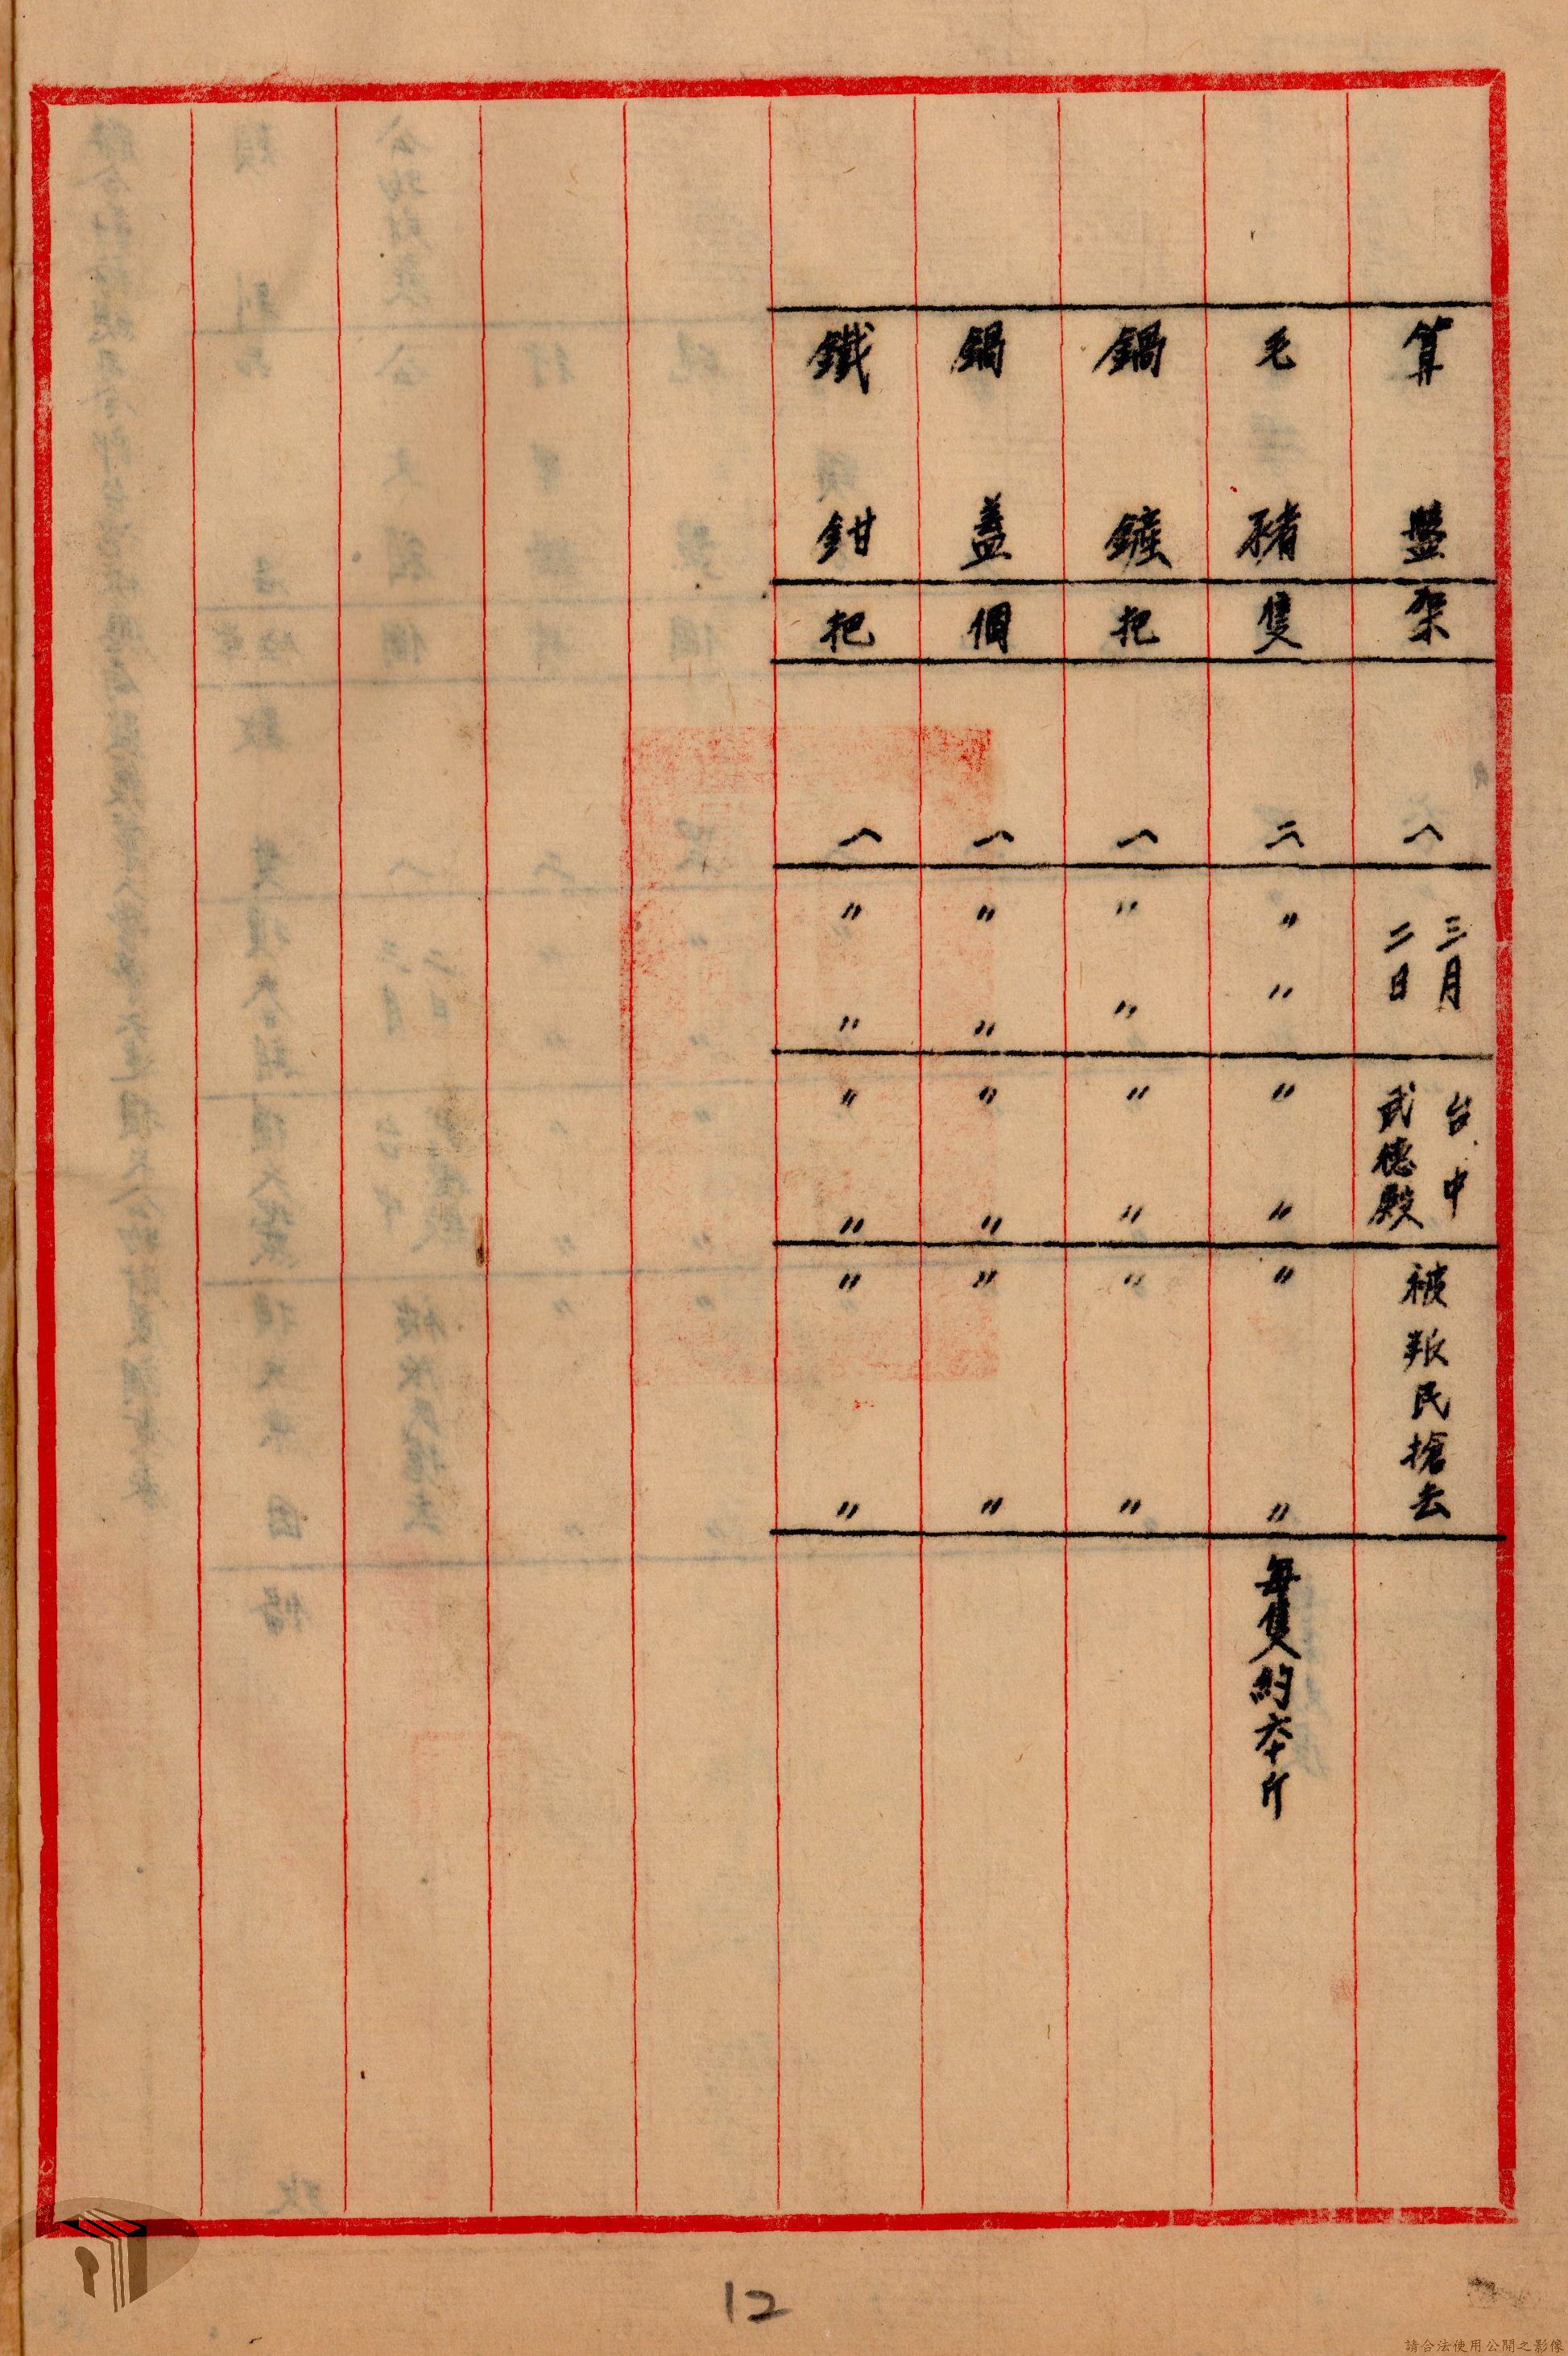 算盤 架 一 三月二日 台中武德殿 被叛民搶去
毛豬 隻 二 〃 〃 〃 〃 〃 〃 每隻約六十斤
鍋鏟 把 一 〃 〃 〃 〃 〃 〃
鍋蓋 個 一 〃 〃 〃 〃 〃 〃
鐵鉗 把 一 〃 〃 〃 〃 〃 〃
12
請合法使用公開之影像